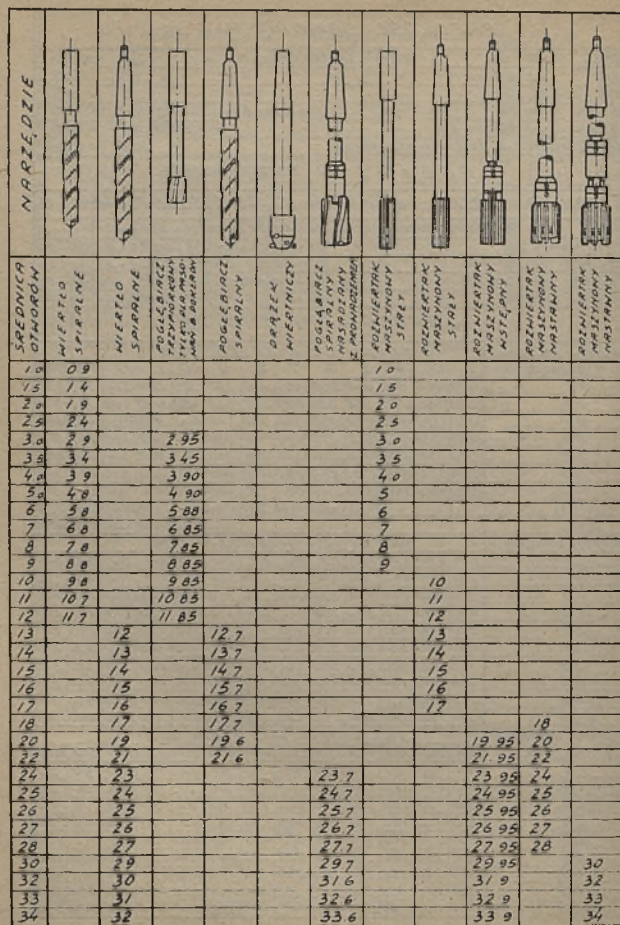 NARZĘDZIE
ŚREDNICA OTWORÓW | WIERTŁO SPIRALNE | WIERTŁO SPIRALNE | POGŁĘBIACZ TRZYPIÓRKOWY TYLKO DLA MASOWAN. | POGŁĘBIACZ SPIRALNY | DRĄŻEK WIERTNICZY | POGŁĘBIACZ SPIRALNY NASADZANY Z PROWADZENIEM | ROZWIERTAK MASZYNOWY STAŁY | ROZWIERTAK MASZYNOWY STAŁY | ROZWIERTAK MASZYNOWY WSTĘPNY | ROZWIERTAK MASZYNOWY NASTAWNY | ROZWIERTAK MASZYNOWY NASTAWNY
1 0 0 9 1 0
1 5 1 4 1 5
2 0 1.9 2 0
2 5 2 4 2 5
3 0 2 9 2.95 3 0
3 5 3 4 3 45 3 5
4 0 3 9 3 90 4 0
5 0 4 8 4 90 5
6 5 8 5 88 6
7 6 8 6 85 7
8 7 8 7 85 8
9 8 8 8 85 9
10 9 8 9 85 10
11 10 7 10 85 11
12 11 7 11 85 12
13 12 12.7 13
14 13 13 7 14
15 14 14 7 15
16 15 15 7 16
17 16 16 7 17
18 17 17 7 18
20 19 19 6 19 95 20
22 21 21 6 21. 95 22
24 23 23 7 23 95 24
25 24 24 7 24 95 25
26 25 25 7 25 95 26
27 26 26 7 26 95 27
28 27 27 7 27. 95 28
30 29 29 7 29 95 30
32 30 31 6 31 9 32
33 31 32 6 32 9 33
34 32 33.6 33 9 34